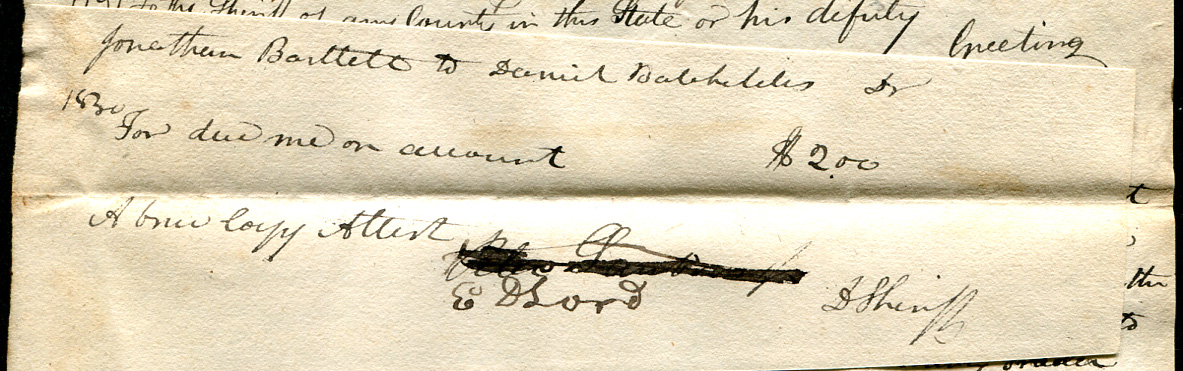 To the Sheriff of any County in this State or his deputy Greeting
Jonathan Bartlett to Daniel Batchelder Dr
1830
For due me on account $2.00
A true Copy Attest
E D Lord D Sheriff
t
the
to